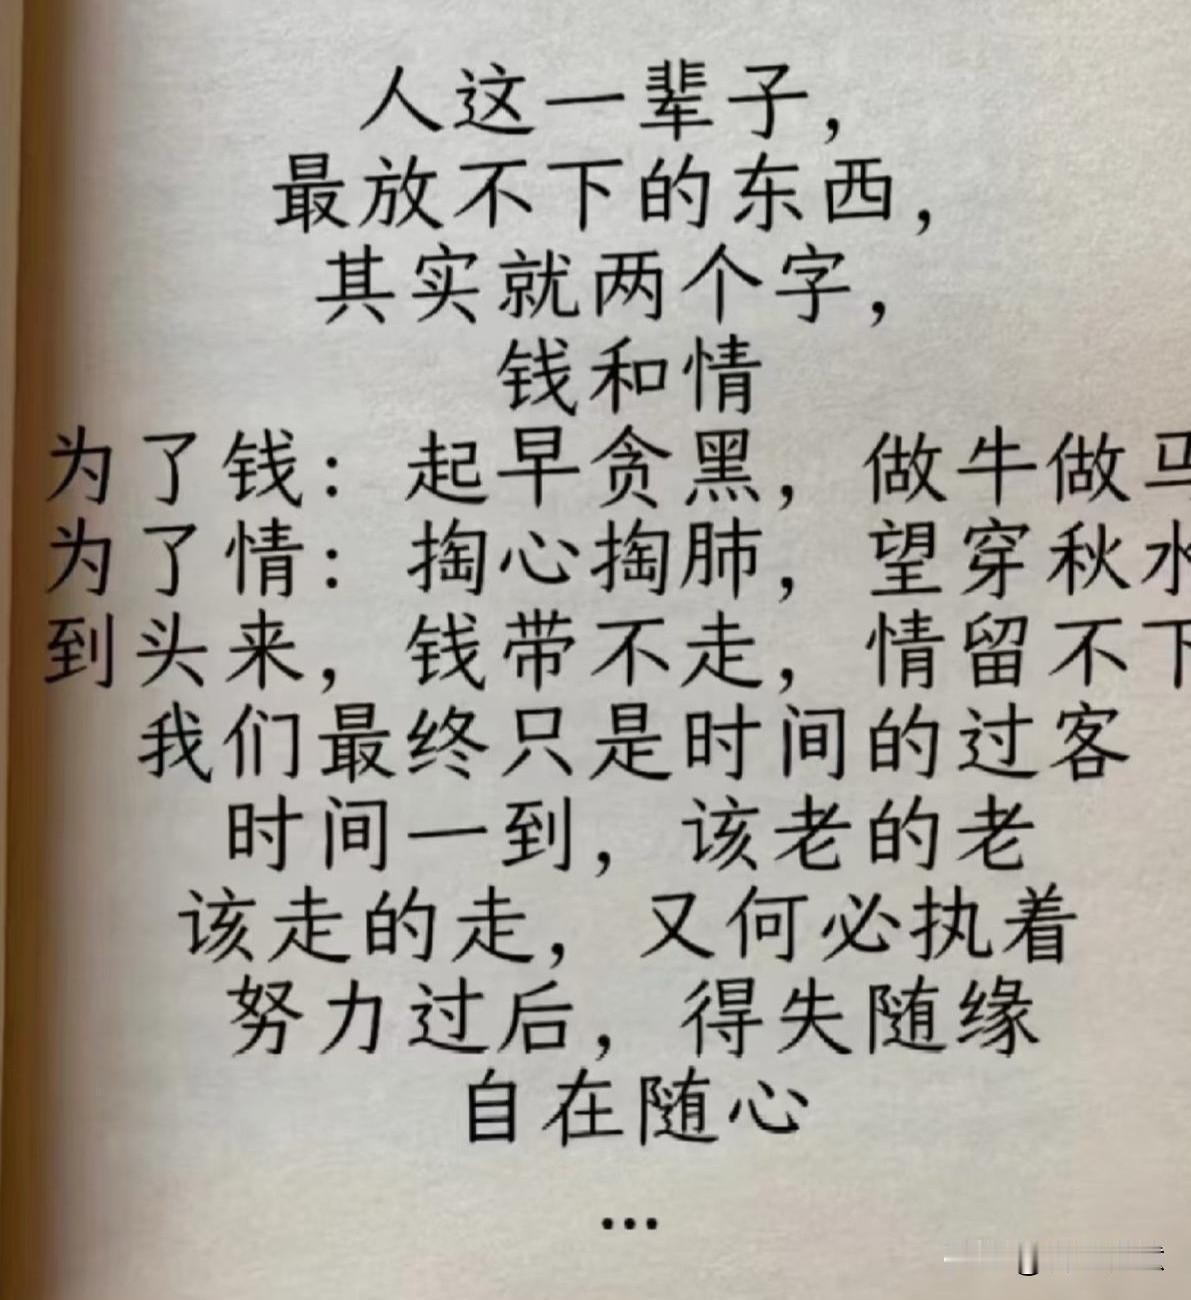 人这一辈子，
最放不下的东西，
其实就两个字，
钱和情
为了钱：起早贪黑，做牛做马
为了情：掏心掏肺，望穿秋水
到头来，钱带不走，情留不下
我们最终只是时间的过客
时间一到，该老的老
该走的走，又何必执着
努力过后，得失随缘
自在随心
...